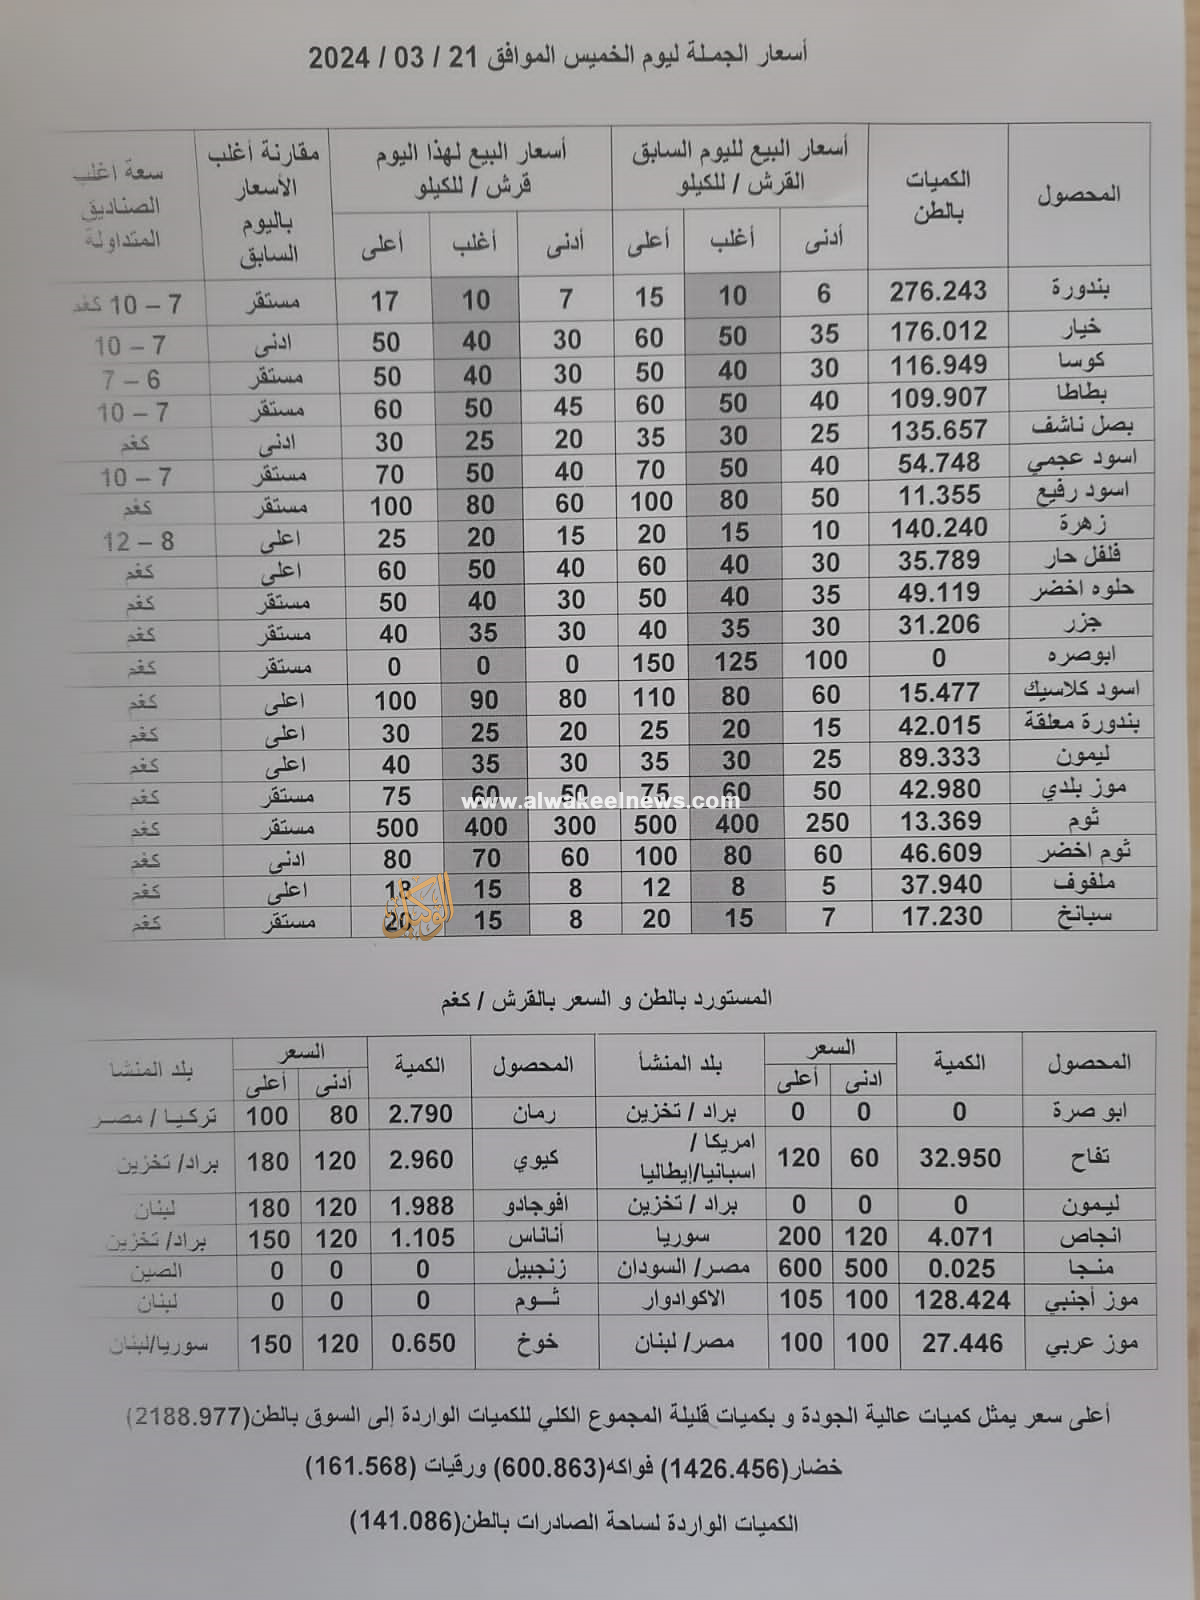 أسعار الجملة ليوم الخميس الموافق 21 / 03 / 2024
المحصول | الكميات بالطن | أسعار البيع لليوم السابق القرش / للكيلو | أسعار البيع لهذا اليوم قرش / للكيلو | مقارنة أغلب الأسعار باليوم السابق | سعة اغلب الصناديق المتداولة
أدنى | أغلب | أعلى | أدنى | أغلب | أعلى
بندورة | 276.243 | 6 | 10 | 15 | 7 | 10 | 17 | مستقر | 7 – 10 كغم
خيار | 176.012 | 35 | 50 | 60 | 30 | 40 | 50 | ادنى | 7 – 10
كوسا | 116.949 | 30 | 40 | 50 | 30 | 40 | 50 | مستقر | 6 – 7
بطاطا | 109.907 | 40 | 50 | 60 | 45 | 50 | 60 | مستقر | 7 – 10
بصل ناشف | 135.657 | 25 | 30 | 35 | 20 | 25 | 30 | ادنى | كغم
اسود عجمي | 54.748 | 40 | 50 | 70 | 40 | 50 | 70 | مستقر | 7 – 10
اسود رفيع | 11.355 | 50 | 80 | 100 | 60 | 80 | 100 | مستقر | كغم
زهرة | 140.240 | 10 | 15 | 20 | 15 | 20 | 25 | اعلى | 8 – 12
فلفل حار | 35.789 | 30 | 40 | 60 | 40 | 50 | 60 | اعلى | كغم
حلوه اخضر | 49.119 | 35 | 40 | 50 | 30 | 40 | 50 | مستقر | كغم
جزر | 31.206 | 30 | 35 | 40 | 30 | 35 | 40 | مستقر | كغم
ابوصره | 0 | 100 | 125 | 150 | 0 | 0 | 0 | مستقر | كغم
اسود كلاسيك | 15.477 | 60 | 80 | 110 | 80 | 90 | 100 | اعلى | كغم
بندورة معلقة | 42.015 | 15 | 20 | 25 | 20 | 25 | 30 | اعلى | كغم
ليمون | 89.333 | 25 | 30 | 35 | 30 | 35 | 40 | اعلى | كغم
موز بلدي | 42.980 | 50 | 60 | 75 | 50 | 60 | 75 | مستقر | كغم
www.alwakeelnews.com
ثوم | 13.369 | 250 | 400 | 500 | 300 | 400 | 500 | مستقر | كغم
ثوم اخضر | 46.609 | 60 | 80 | 100 | 60 | 70 | 80 | ادنى | كغم
ملفوف | 37.940 | 5 | 8 | 12 | 8 | 15 | 18 | اعلى | كغم
سبانخ | 17.230 | 7 | 15 | 20 | 8 | 15 | 20 | مستقر | كغم
الوكيل
المستورد بالطن و السعر بالقرش / كغم
المحصول | الكمية | السعر | بلد المنشأ | المحصول | الكمية | السعر | بلد المنشا
ادنى | أعلى | أدنى | أعلى
ابو صرة | 0 | 0 | 0 | براد / تخزين | رمان | 2.790 | 80 | 100 | تركيا / مصر
تفاح | 32.950 | 60 | 120 | امريكا / اسبانيا/إيطاليا | كيوي | 2.960 | 120 | 180 | براد/ تخزين
ليمون | 0 | 0 | 0 | براد / تخزين | افوجادو | 1.988 | 120 | 180 | لبنان
انجاص | 4.071 | 120 | 200 | سوريا | أناناس | 1.105 | 120 | 150 | براد/ تخزين
منجا | 0.025 | 500 | 600 | مصر/ السودان | زنجبيل | 0 | 0 | 0 | الصين
موز أجنبي | 128.424 | 100 | 105 | الاكوادوار | ثوم | 0 | 0 | 0 | لبنان
موز عربي | 27.446 | 100 | 100 | مصر/ لبنان | خوخ | 0.650 | 120 | 150 | سوريا/لبنان
أعلى سعر يمثل كميات عالية الجودة و بكميات قليلة المجموع الكلي للكميات الواردة إلى السوق بالطن(2188.977)
خضار(1426.456) فواكه(600.863) ورقيات (161.568)
الكميات الواردة لساحة الصادرات بالطن(141.086)